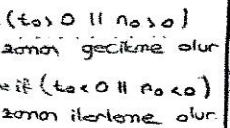 (t₀>0 || n₀>0)
zaman gecikme olur
e if (t₀<0 || n₀<0)
zaman ilerleme olur.